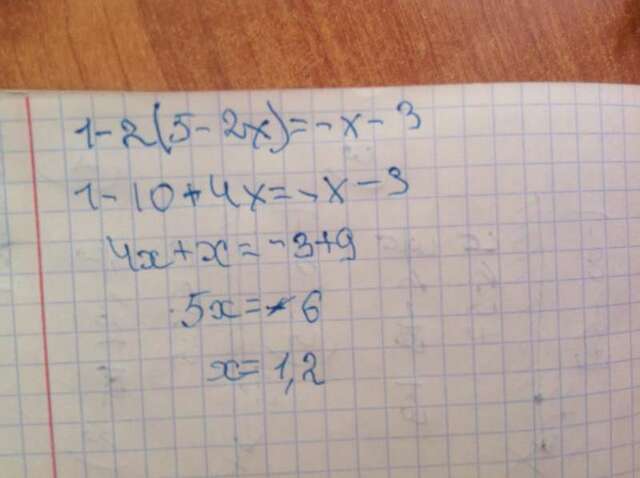 1-2(5-2x)=-x-3
1-10+4x=-x-3
4x+x=-3+9
5x=6
x=1,2